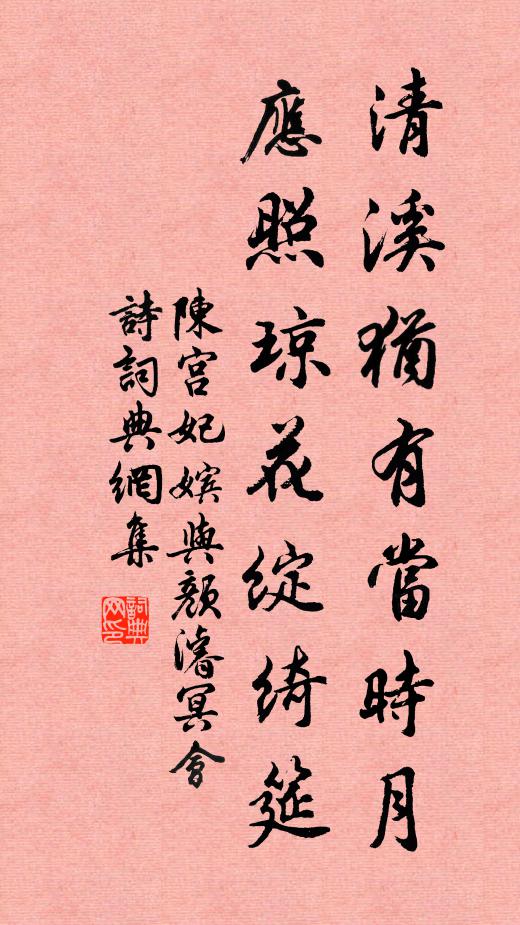 清溪猶有當時月
應照琼花綻綺筵
陳宮妃嬪與顏濬冥會
詩詞典網集
詞典
网印